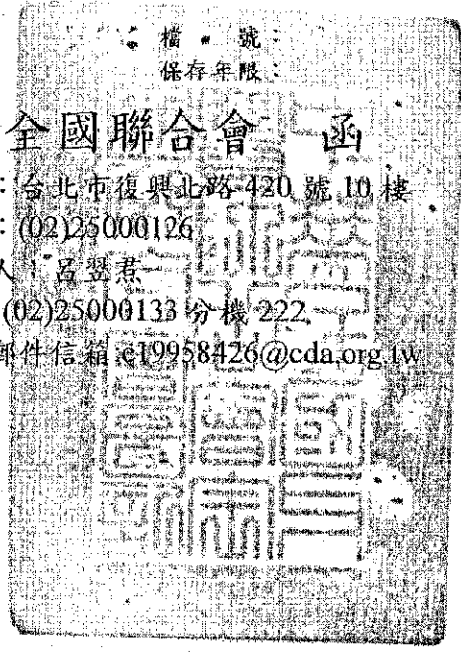 檔 號：
保存年限：
全國聯合會 函
：台北市復興北路 420 號 10 樓
：(02)25000126
人：呂翌熏
(02)25000133 分機 222
郵件信箱：c19958426@cda.org.tw